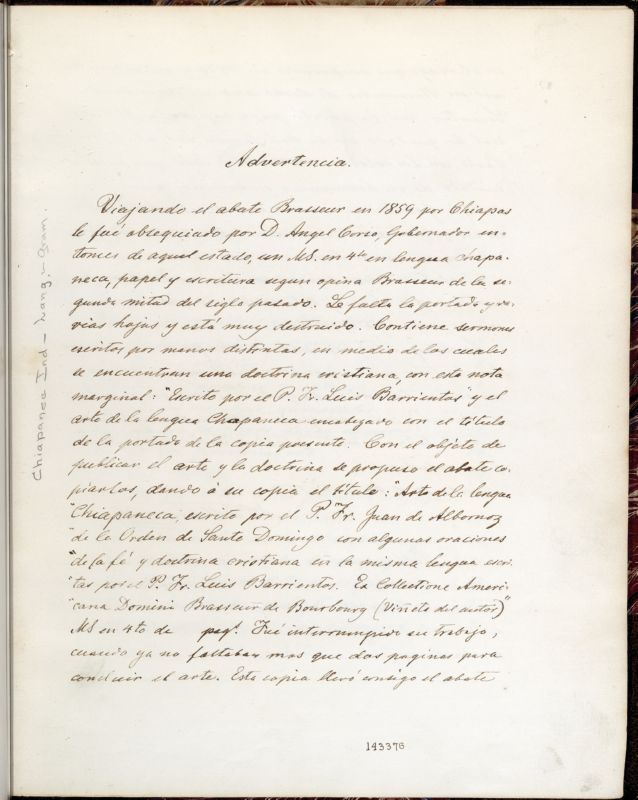 Advertencia.
Viajando el abate Brasseur en 1859 por Chiapas
le fué obsequiado por D. Angel Corzo, Gobernador en-
tonces de aquel estado, un MS. en 4to en lengua chapa-
neca, papel y escritura segun opina Brasseur de la se-
gunda mitad del siglo pasado. Le falta la portada y va-
rias hojas y está muy destruido. Contiene sermones
escritos por manos distintas, en medio de los cuales
se encuentran una doctrina cristiana, con esta nota
marginal: "Escrito por el P. Fr. Luis Barrientos" y el
arte de la lengua Chapaneca encabezado con el titulo
de la portada de la copia presente. Con el objeto de
publicar el arte y la doctrina se propuso el abate co-
piarlos, dando á su copia el titulo: "Arte de la lengua
"Chiapaneca, escrito por el P. Fr. Juan de Albornoz
"de la Orden de Santo Domingo con algunas oraciones
"de la fé y doctrina cristiana en la misma lengua escri-
"tas por el P. Fr. Luis Barrientos. Ex Collectione Ameri-
"cana Domini Brasseur de Bourbourg (Viñeta del autor)"
MS en 4to de pags. Fué interrumpido su trabajo,
cuando ya no faltaban mas que dos paginas para
concluir el arte. Esta copia llevó consigo el abate
Chiapanec Ind - Lang. - Gram.
143376